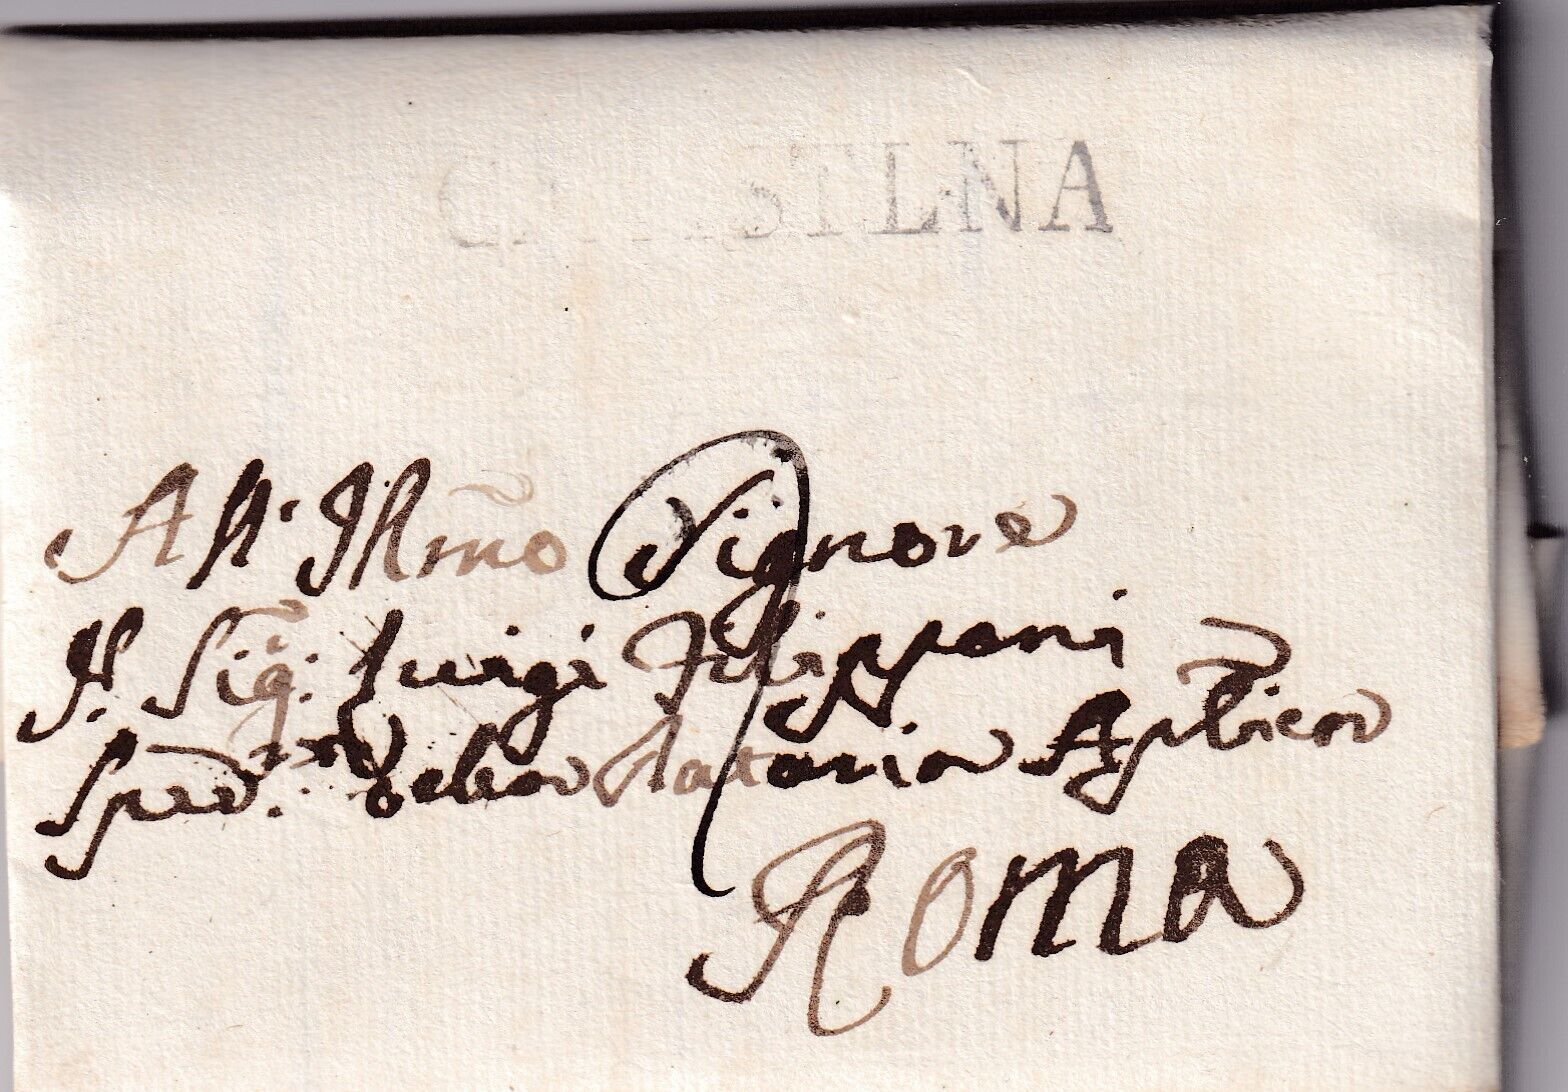 All' Illmo Signore
Il Sig: Luigi Filippani
Sped.re della Dataria Aplica
Roma